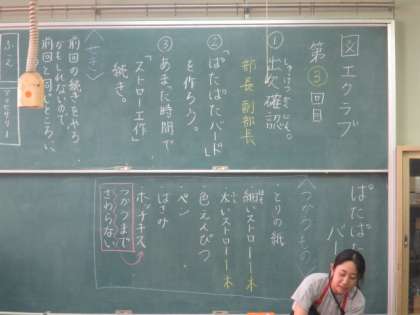 図工クラブ
第③回目
①出欠確認
しゅっけつかくにん。
部長 副部長
②「ぱたぱたバード」
を作ろう。
③あまった時間で
「ストロー工作」
続き。
〈せき〉
前回の続きをやる
かもしれないので、
前回と同じところへ。
ぱたぱた
バー
〈つかうもの〉
・とりの紙
・細いストロー一本
・太いストロー一本
・色えんぴつ
・ペン
・はさみ
・ホッチキス
つかうまで
さわらない